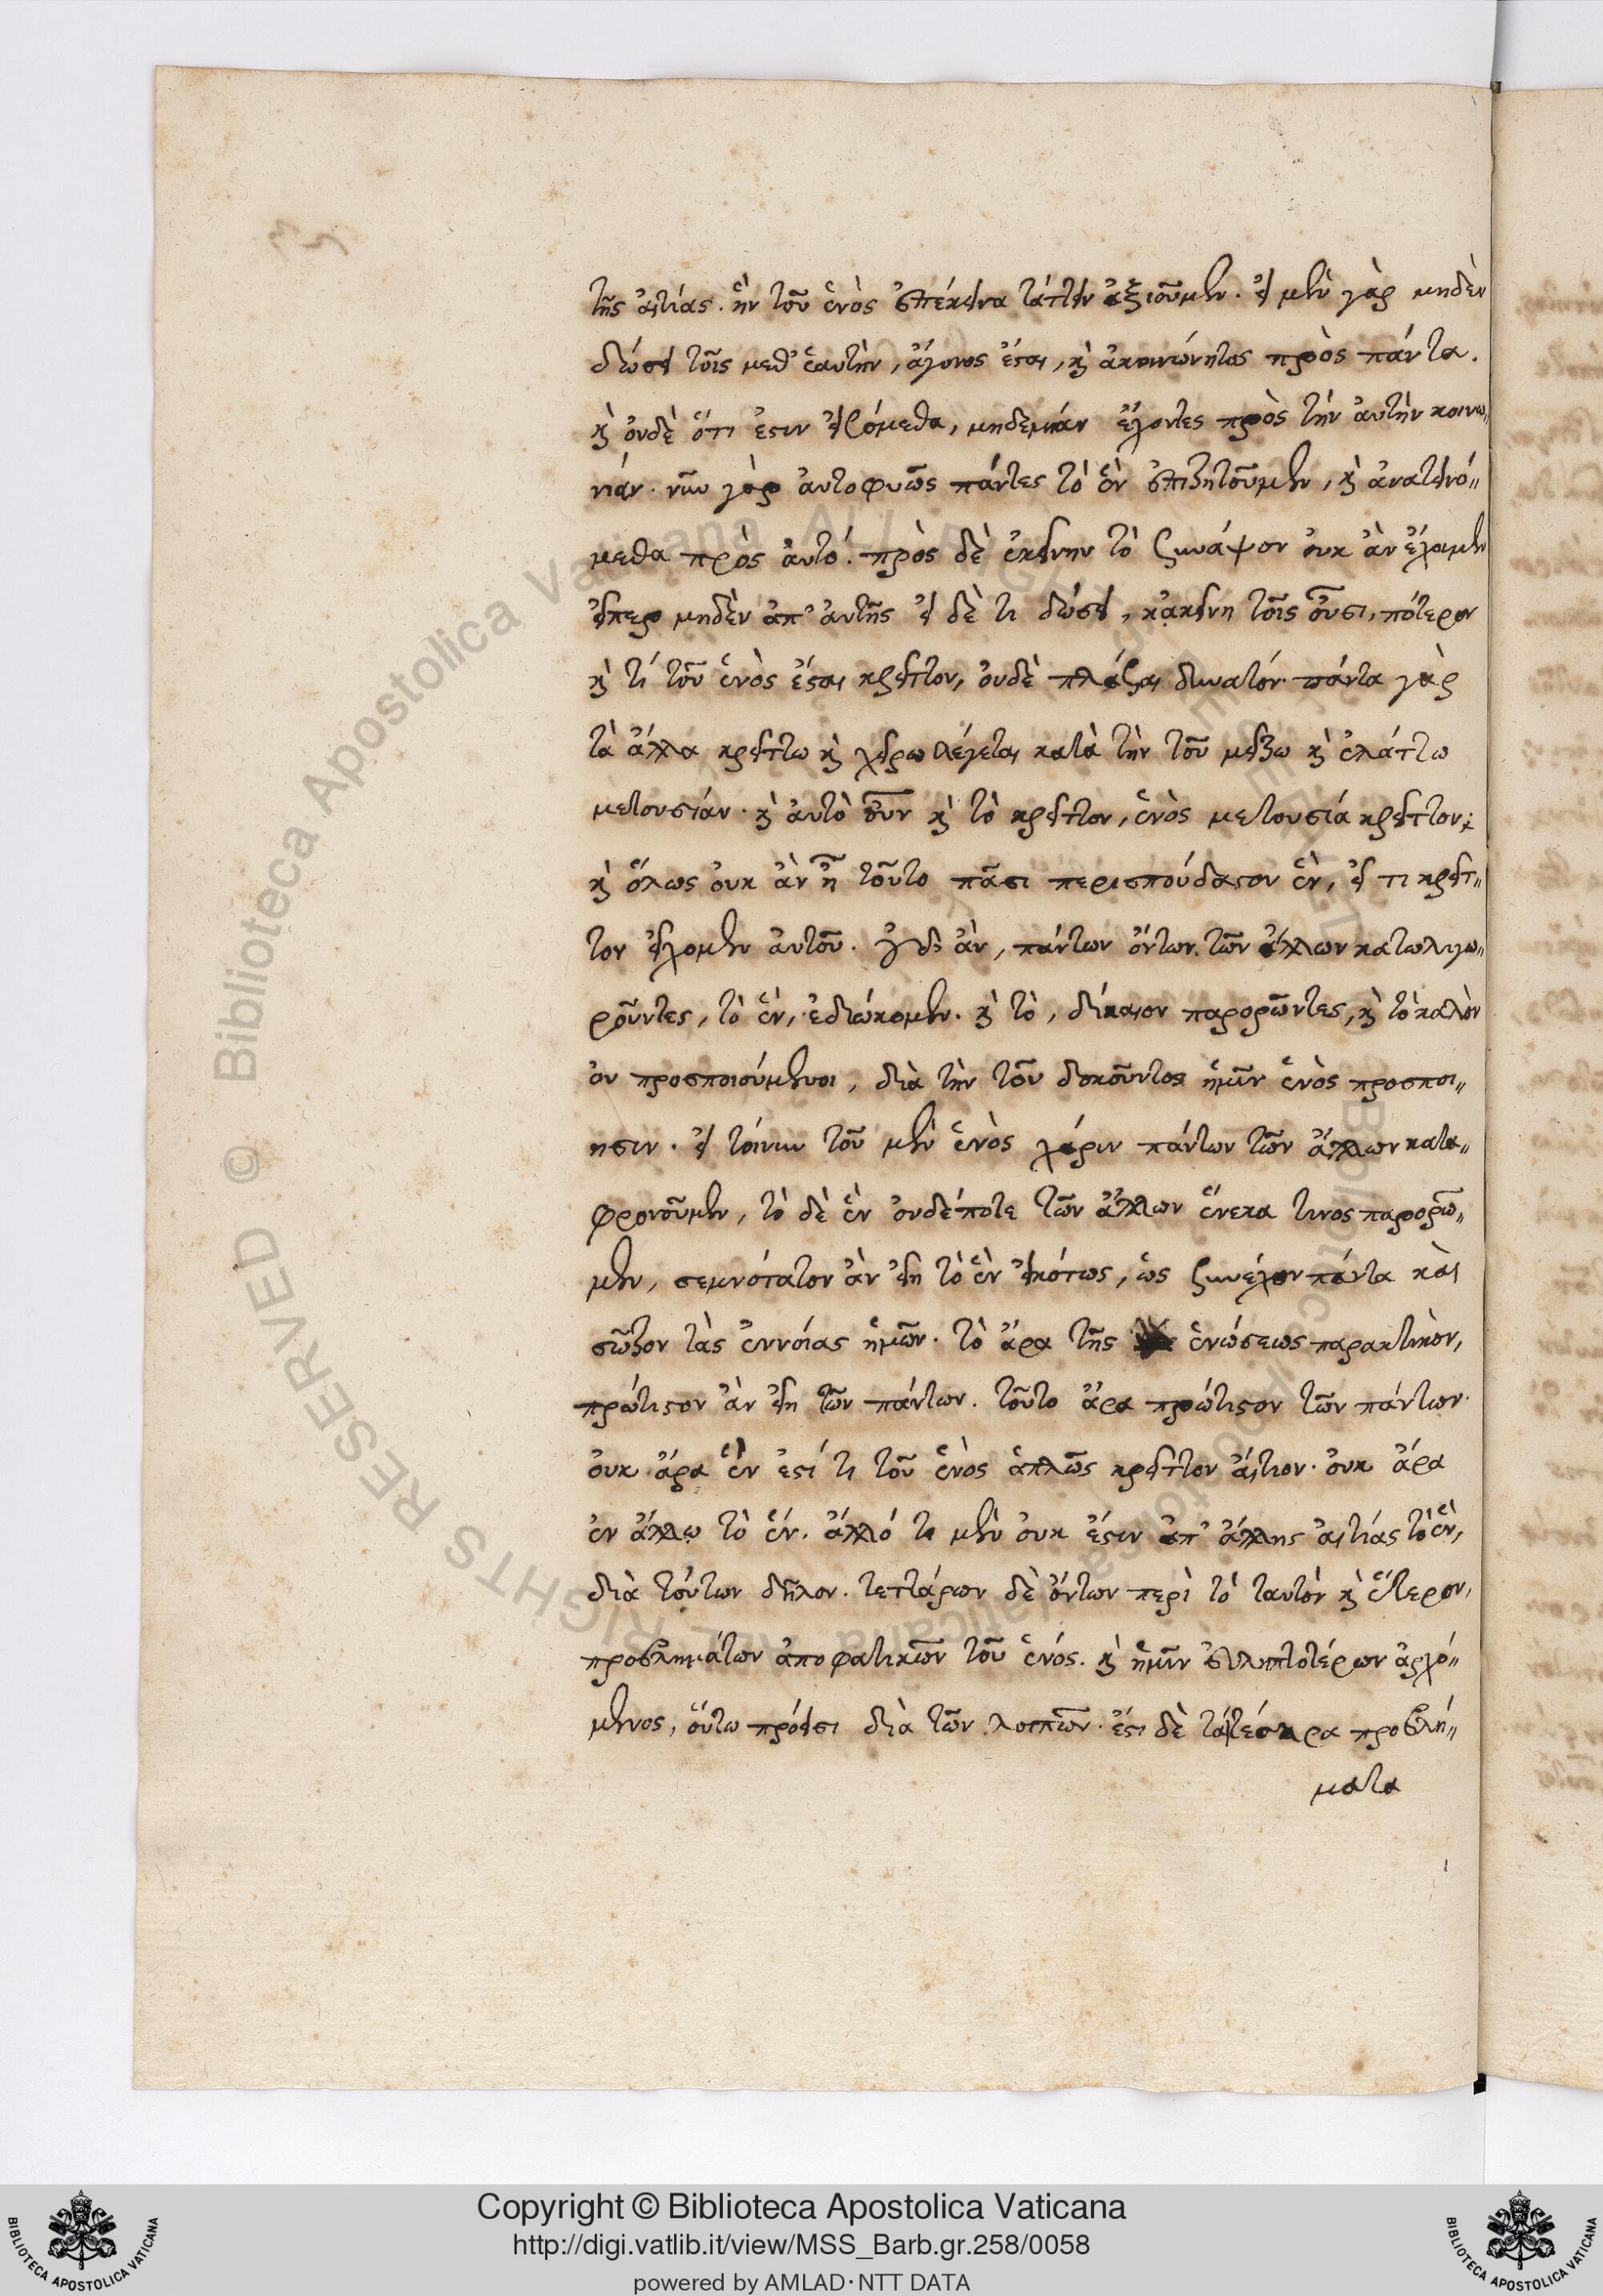 τῆς αἰτίας. ἣν τοῦ ἑνὸς ἐπέκεινα τάττειν ἀξιοῦμεν. εἰ μὲν γὰρ μηδὲν
δώσει τοῖς μεθ' ἑαυτὴν, ἄγονος ἔσαι, κ̀ ἀκοινώνητος πρὸς πάντα.
κ̀ ὀυδὲ ὅτι ἐσιν εἰσόμεθα, μηδεμιάν ἔχοντες πρὸς τὴν ἀυτὴν κοινω„
νιάν. νῦν γὰρ ἀυτοφυῶς πάντες τὸ ἓν ἐπιζητοῦμεν, κ̀ ἀνατεινό„
μεθα πρὸς ἀυτό. πρὸς δὲ ἐκείνην τὸ ξυνάψον ὀυκ ἂν ἔχοιμεν
εἴπερ μηδὲν ἀπ' ἀυτῆς εἰ δὲ τι δώσει, κᾀκείνη τοῖς ὀῦσι, πότερον
κ̀ τί τοῦ ἑνὸς ἔσαι κρεῖττον, ὀυδὲ πλάσαι δυνατόν. πάντα γὰρ
τὰ ἄλλα κρείττω κ̀ χείρω λέγεται κατὰ τὴν τοῦ μείζω κ̀ ἐλάττω
μετουσίάν. κ̀ ἀυτὸ ὀῦν κ̀ τὸ κρεῖττον, ἑνὸς μετουσία κρεῖττον;
κ̀ ὅλως ὀυκ ἂν ἦ τοῦτο πᾶσι περισπούδασον ἓν, εἴ τι κρεῖτ„
τον εἴχομεν ἀυτοῦ. πάντων ὄντων. τῶν ἄλλων κατωλιγω„
ροῦντες, τὸ ἓν, ἐδιώκομεν. κ̀ τὸ, δίκαιον παρορῶντες, κ̀ τὸ καλὸν
ὀν προσποιούμενοι, διὰ τὴν τοῦ δοκοῦντος ἡμῖν ἑνὸς προσποι„
ησιν. εἰ τοίνυν τοῦ μὲν ἑνὸς χάριν πάντων τῶν ἄλλων κατα„
φρονοῦμεν, τὸ δὲ ἓν ὀυδέποτε τῶν ἄλλων ἕνεκα τινος παρορῶ„
μεν, σεμνότατον ἂν εἴη τὸ ἓν εἰκότως, ὡς ξυνέχον πάντα κὰι
σῶζον τὰς ἐννοίας ἡμῶν. τὸ ἄρα τῆς ἑνώσεως παρακτικὸν,
πρώτισον ἂν εἴη τῶν πάντων. τοῦτο ἄρα πρώτισον τῶν πάντων.
ὀυκ ἄρα ἓν ἐσί τι τοῦ ἑνὸς ἁπλῶς κρεῖττον ἄιτιον. ὀυκ ἄρα
ἐν ἄλλῳ τὸ ἕν. ἄλλό τι μὲν ὀυκ ἔσιν ἀπ' ἄλλης ἀιτίας τὸ ἓν,
διὰ τούτων δῆλον. τεττάρων δὲ ὄντων περὶ τὸ ταυτὸν κ̀ ἕτερον,
προβλημάτων ἀποφατικῶν τοῦ ἑνός. κ̀ ἡμῖν ἐυληπτοτέρων ἀρχό„
μενος, ὅυτω πρόεισι διὰ τῶν λοιπῶν. ἔσι δὲ τὰ τέσσαρα προβλή„
ματα
Copyright © Biblioteca Apostolica Vaticana
http://digi.vatlib.it/view/MSS_Barb.gr.258/0058
powered by AMLAD·NTT DATA